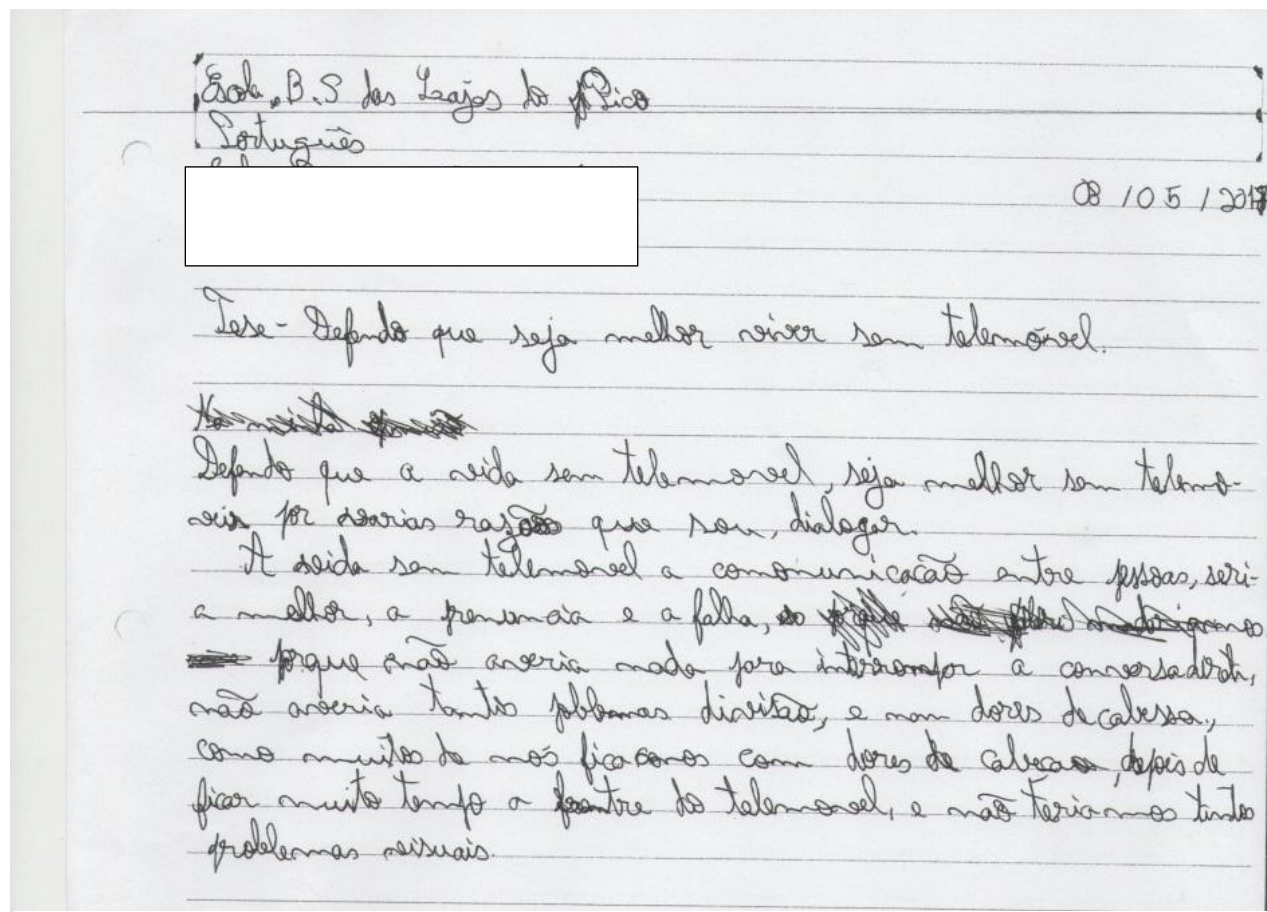 Escola B.S das Lajes do Pico
Português
08 / 05 / 2017
Tese - Defendo que seja melhor viver sem telemóvel.
Defendo que a vida sem telemovel, seja melhor sem telemo-
veis por varias razões que sou, dialogar.
A vida sem telemovel a comonunicacão entre pessoas, seri-
a melhor, a prenuncia e a falha,
porque não averia nada para interrompor a conversa
não averia tantos poblomas divisão, e nem dores de cabessa,
como muitos de nós ficamos com dores de cabeca, depois de
ficar muito tempo a frentre do telemovel, e não teriamos tantos
problemas visuais.